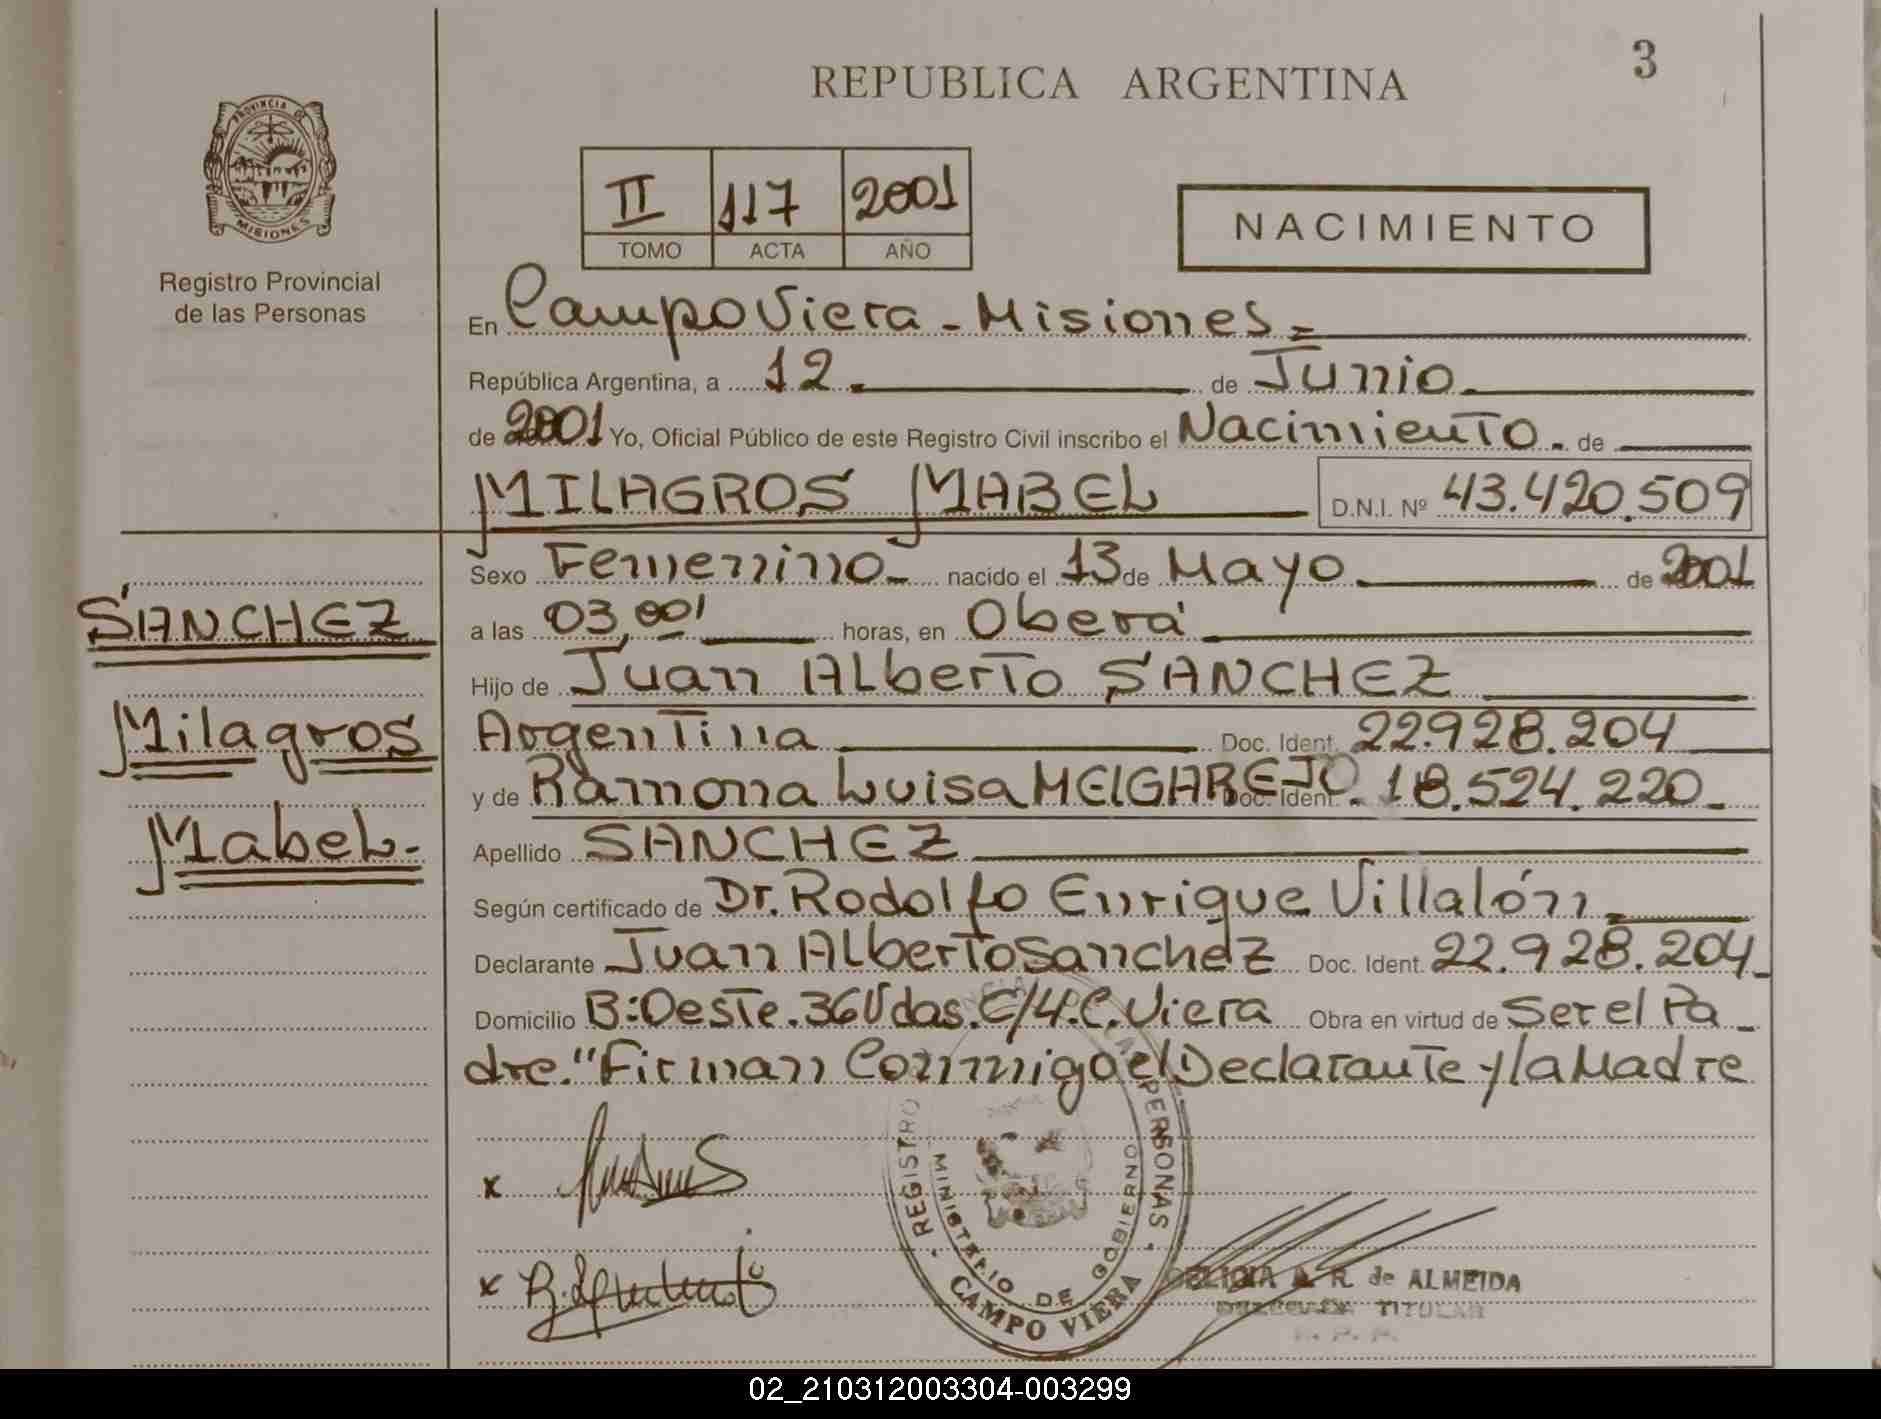 3
REPUBLICA ARGENTINA
PROVINCIA DE
MISIONES
Registro Provincial
de las Personas
II 117 2001
TOMO ACTA AÑO
NACIMIENTO
En Campo Viera - Misiones =
República Argentina, a 12 de Junio
de 2001 Yo, Oficial Público de este Registro Civil inscribo el Nacimiento. de
MILAGROS MABEL D.N.I. Nº 43.420.509
Sexo Femenino nacido el 13 de Mayo de 2001
a las 03,00' horas, en Oberá
SANCHEZ
Hijo de Juan Alberto SANCHEZ
Milagros
Argentina Doc. Ident. 22.928.204
y de Ramona Luisa MELGAREJO Doc. Ident. 18.524.220
Mabel.
Apellido SANCHEZ
Según certificado de Dr. Rodolfo Enrique Villalón
Declarante Juan Alberto Sanchez Doc. Ident. 22.928.204
Domicilio B: Oeste. 36 Vdas. C/4. C. Viera Obra en virtud de Ser el Pa_
dre." Firman Conmigo el Declarante y la Madre
x
x
REGISTRO PERSONAS
MINISTERIO DE GOBIERNO
CAMPO VIERA
A. R. de ALMEIDA
TITULAR
02_210312003304-003299